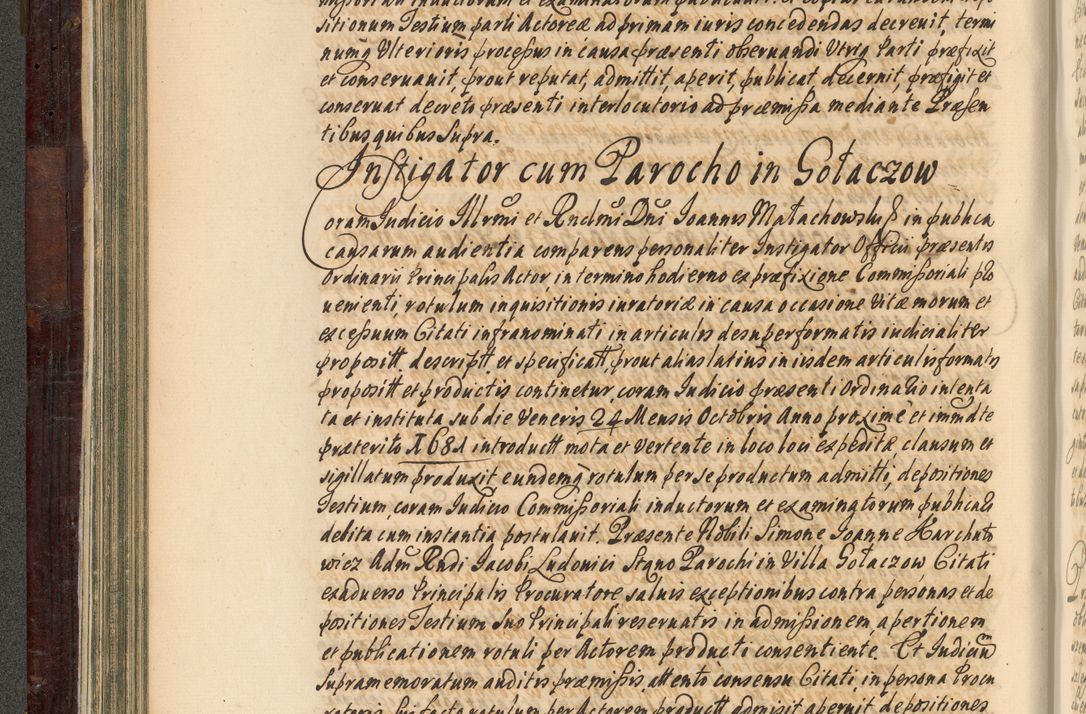 sitionum Testium parti Actoreæ ad primam iuris concedendas decreuit, termi
numq Vlterioris processus in causa præsenti obseruandi Vtriq Parti præfixit
et conseruauit, prout reputat, admittit, aperit, publicat decernit, præfigit et
conseruat decreto præsenti interlocutorio ad præmissa mediante Præsen
tibus quibus Supra.
Instigator cum Parocho in Gołaczow
Coram Iudicio Illrmi et Rndmi Dni Ioannis Małachowski in publica
causarum audientia comparens personaliter Instigator Officii præsentis
Ordinarii Principalis Actor, in termino hodierno ex præfixione Commissoriali pro
uenienti, rotulum inquisitionis iuratoriæ in causa occasione Vitæ morum et
excessuum Citati infranominati in articulis desuper formatis iudicialiter
propositt descriptt et specificatt, prout alias latius in iisdem articulis formatis
propositt et productis continetur, coram Iudicio præsenti Ordinario intenta
ta et instituta sub die Veneris 24 Mensis Octobris Anno proxime et immdte
præterito 1681 introductt mota et Vertente in loco loci expeditæ clausum et
sigillatum produxit eundemq rotulum per se productum admitti, depositiones
Testium, coram Iudicio Commissoriali inductorum et examinatorum publicari
debita cum instantia postulauit. Præsente Nobili Simone Ioanne Karchuto
wicz Adm Rndi Iacobi Ludovici Stano Parochi in Villa Gołaczow Citati
ex aduerso Principalis Procuratore saluis exceptionibus contra personas et de
positiones Testium Suo Principali reseruatis in admissionem, apertionem
et publicationem rotuli per Actorem producti consentiente. Et Iudicium
Supramemoratum auditis præmissis, attento consensu Citati, in persona Procu
ratoris Sui facto rotulum per Actorem productt admisit aperuit, depositiones